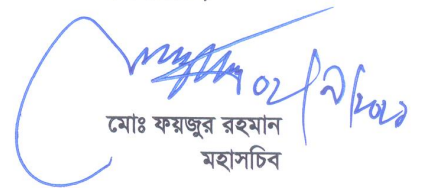 ০২/৯/২০২১
মোঃ ফয়জুর রহমান
মহাসচিব